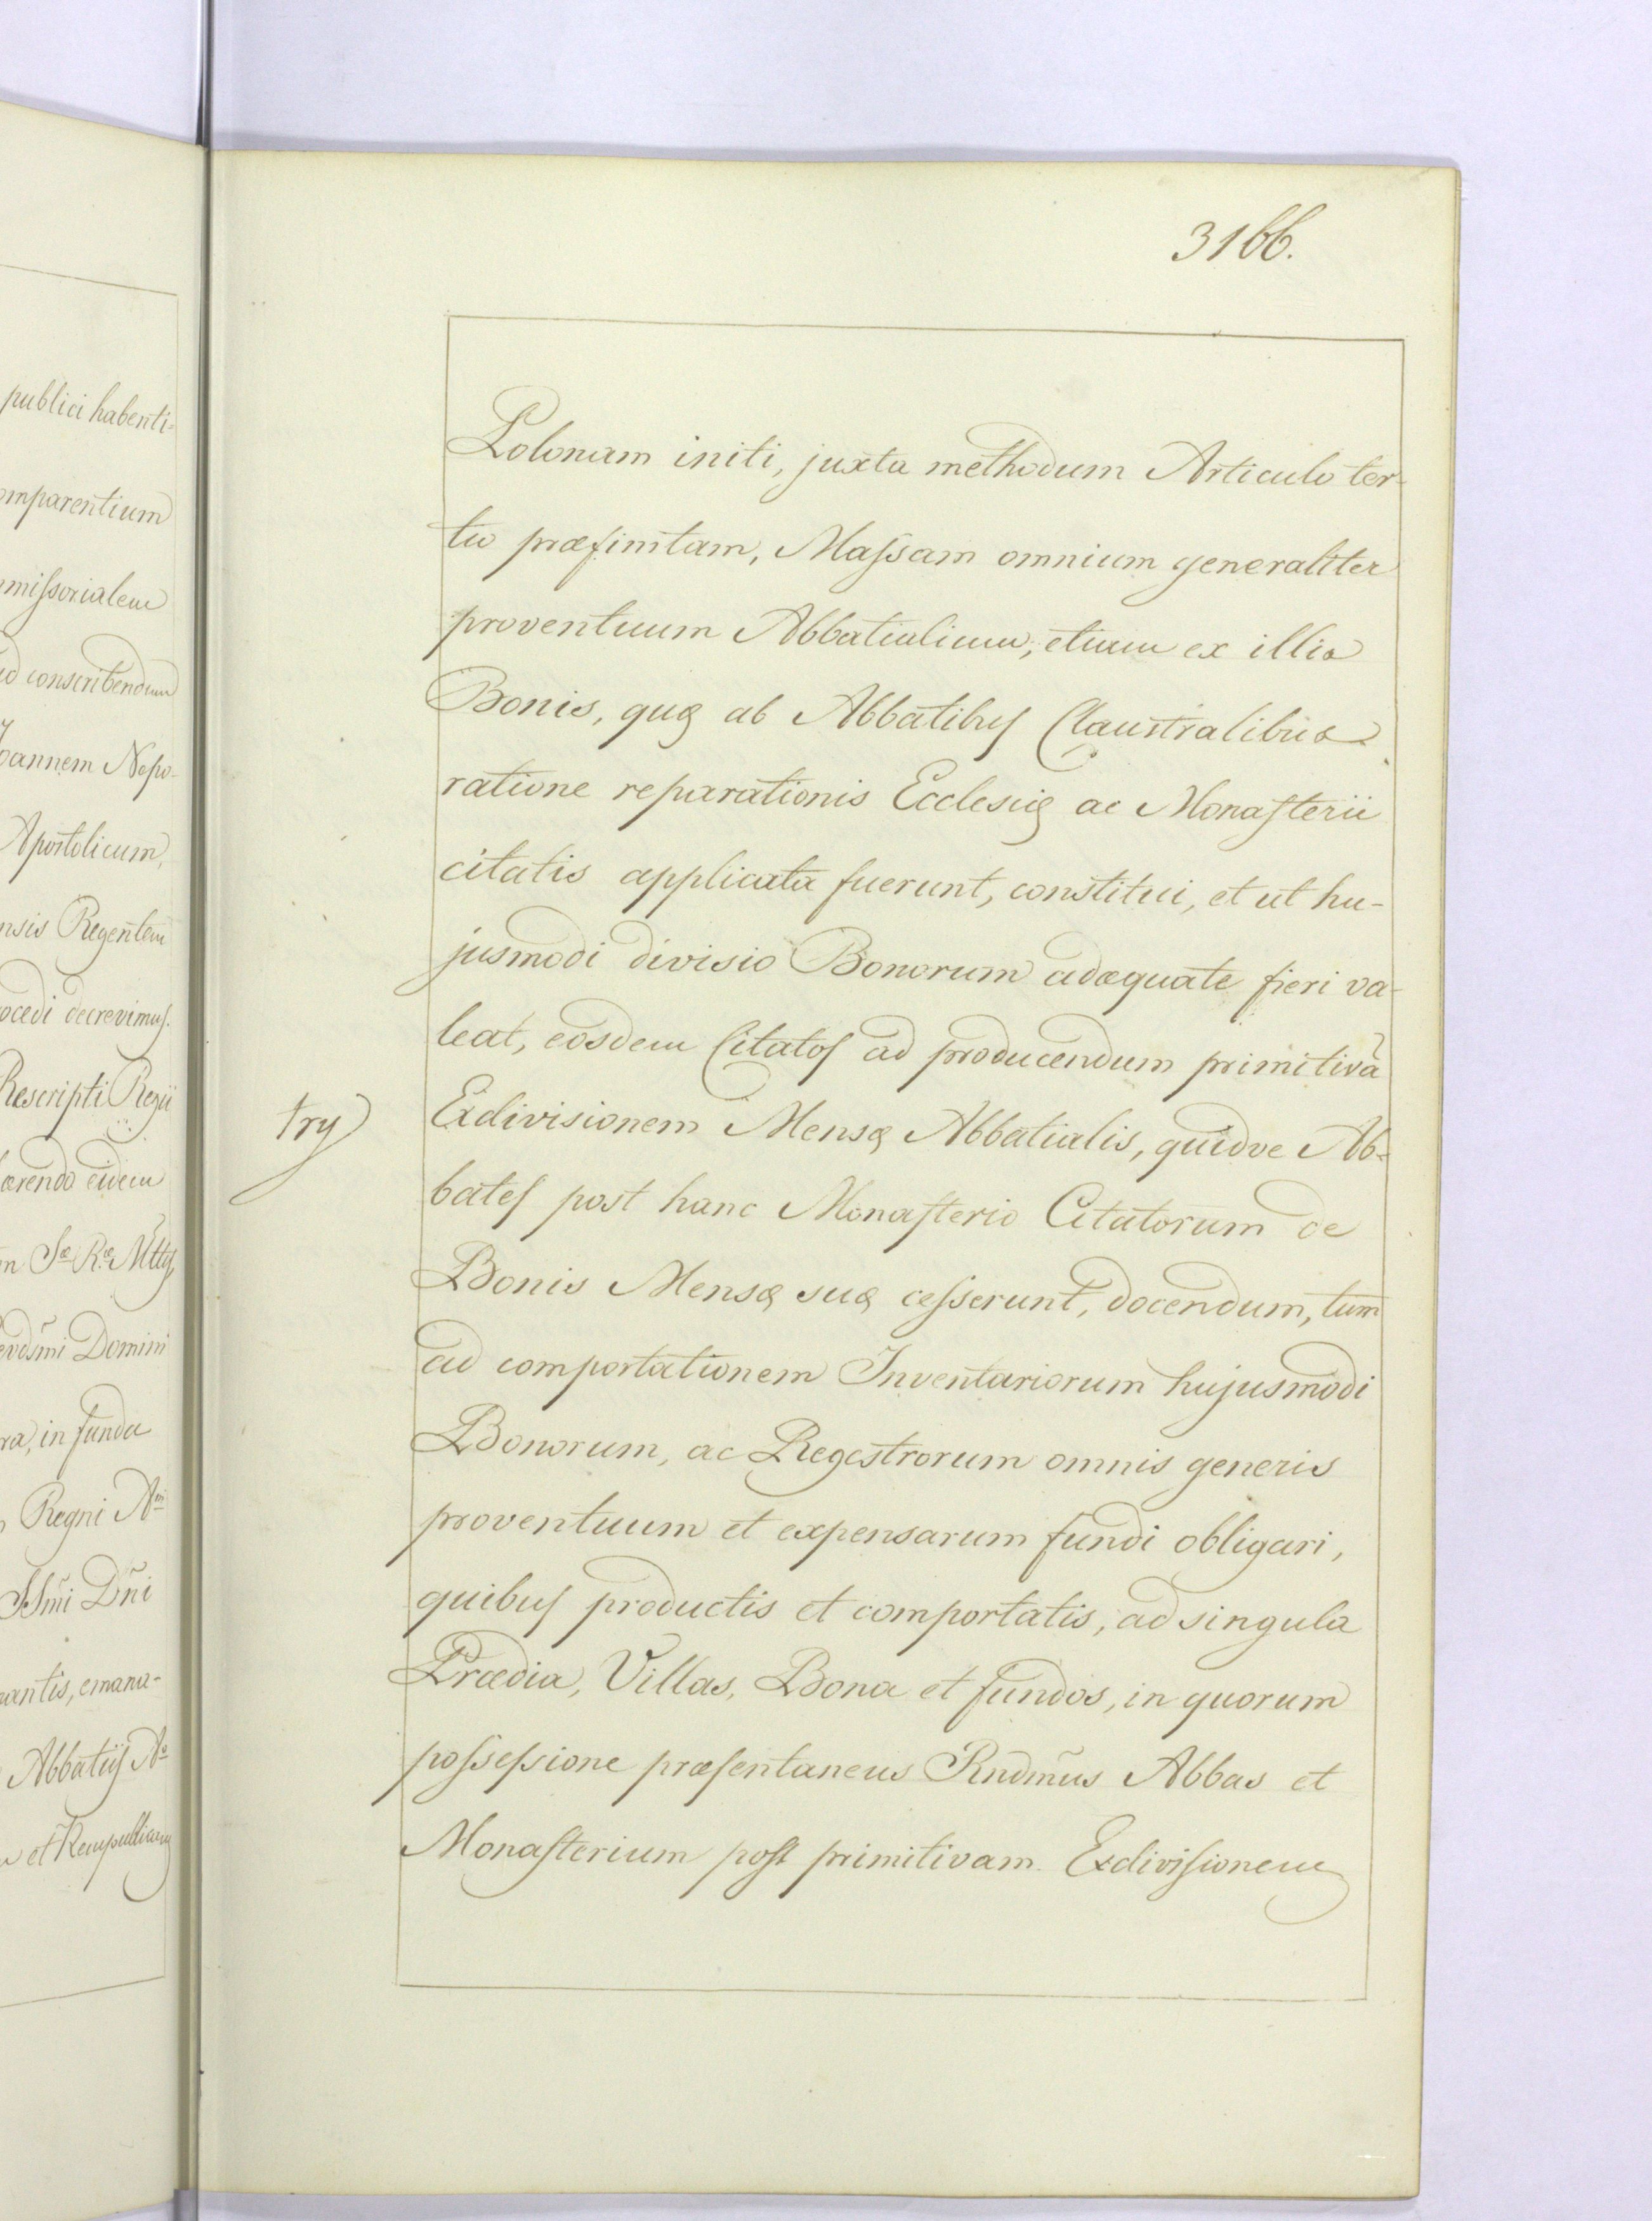 3166.
publici habenti-
omparentium
missorialem
ad conscribendum
Joannem Nepo-
Apostolicum,
nsis Regentem
ocedi decrevimus.
Rescripti Regii
ærendo eidem
evdsm̃i Domini
ra, in fundu
Regni A
SSm̃i Dñi
nantis, emana-
Abbatiis Aº
et Rempublicam
Polonam initi, juxta methodum Articulo ter-
tio præfinitam, Massam omnium generaliter
proventuum Abbatialium, etiam ex illis
Bonis, quę ab Abbatibus Claustralibus
ratione reparationis Ecclesię ac Monasterii
citatis applicata fuerunt, constitui, et ut hu-
jusmodi divisio Bonorum adæquate fieri va-
leat, eosdem Citatos ad producendum primitivã
try
Exdivisionem Mensę Abbatialis, quidve Ab-
bates post hanc Monasterio Citatorum de
Bonis Mensę suę cesserunt, docendum, tum
ad comportationem Inventariorum hujusmodi
Bonorum, ac Regestrorum omnis generis
proventuum et expensarum fundi obligari,
quibus productis et comportatis, ad singula
Prædia, Villas, Bona et fundos, in quorum
possessione præsentaneus Rndm̃us Abbas et
Monasterium post primitivam Exdivisionem